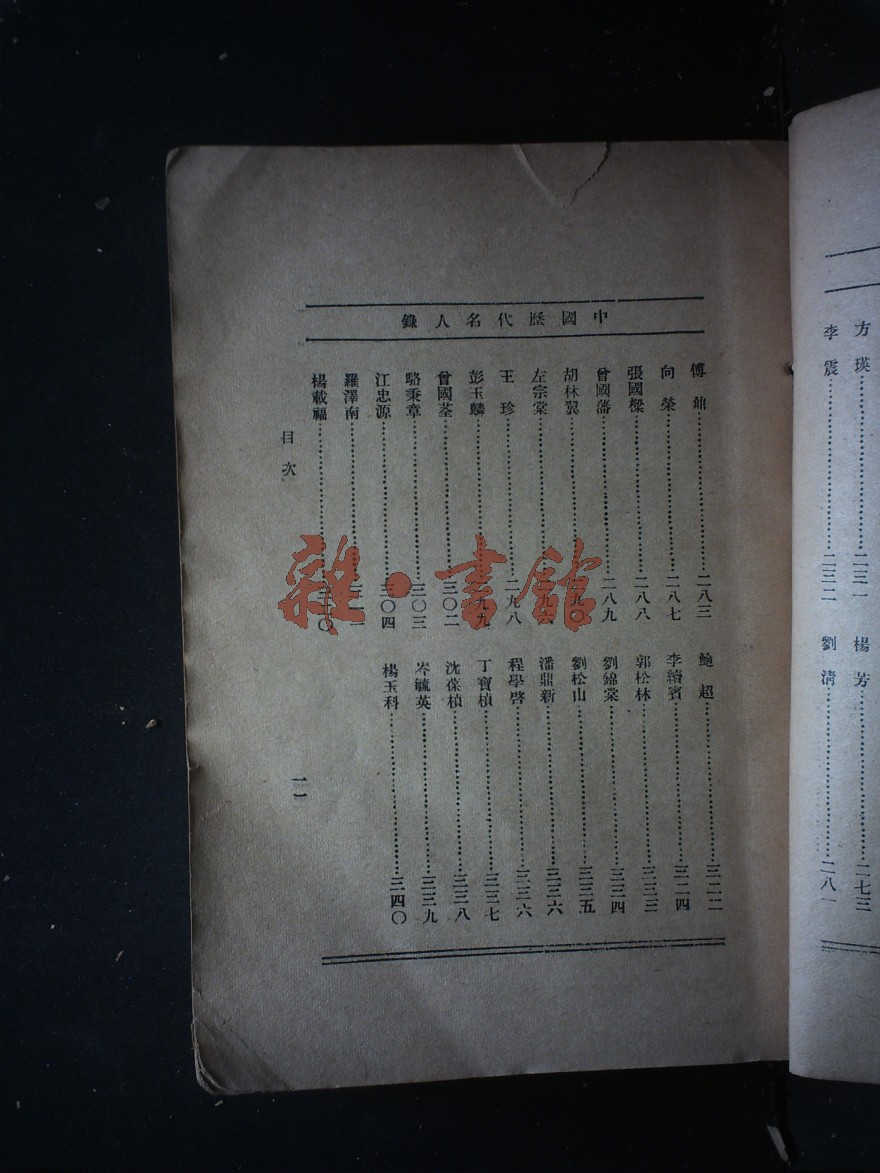 中國歷代名人錄
傅鼐……二八三
向榮……二八七
張國樑……二八八
曾國藩……二八九
胡林翼……二九〇
左宗棠……二九
王珍……二九八
彭玉麟……二九九
曾國荃……三〇二
駱秉章……三〇三
江忠源……三〇四
羅澤南……三一一
楊載福……三二〇
鮑超……三二二
李續賓……三二四
郭松林……三三三
劉錦棠……三三四
劉松山……三三五
潘鼎新……三三六
程學啓……三三六
丁寶楨……三三七
沈葆楨……三三八
岑毓英……三三九
楊玉科……三四〇
目次
一一
雜·書館
方瑛……二三一
李震……二三二
楊芳……二七三
劉清……二八一